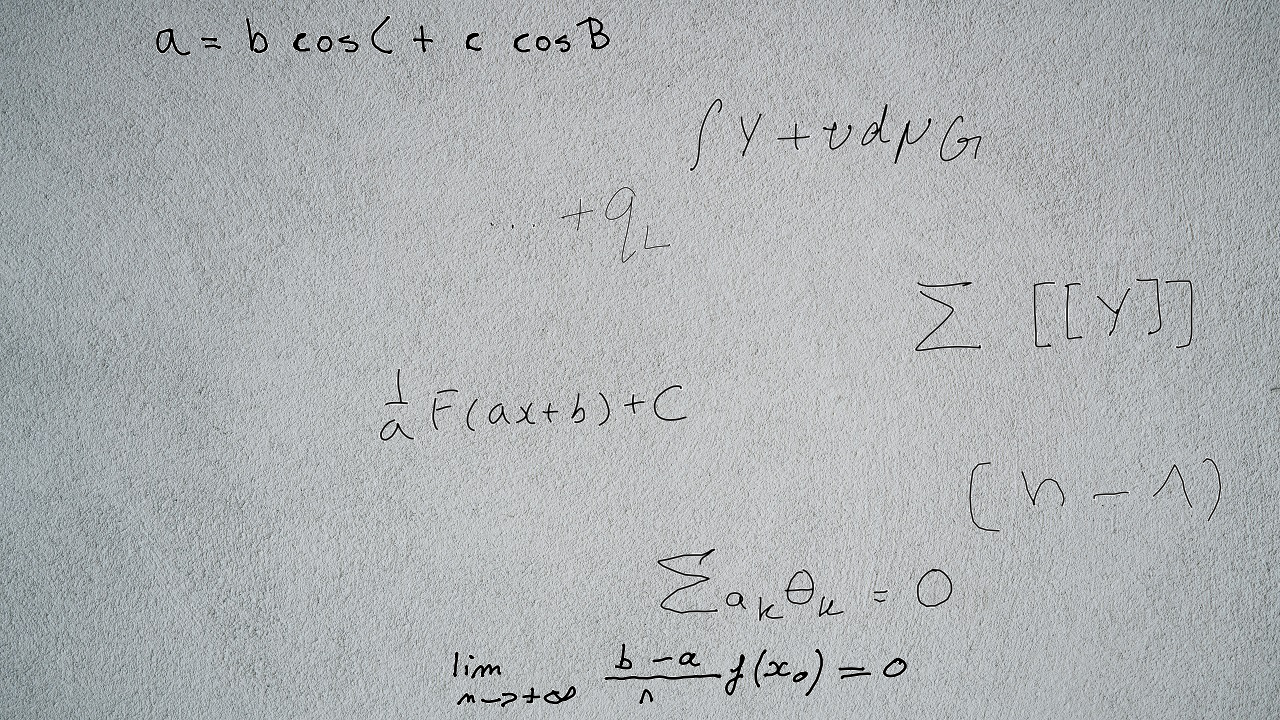 a = b cos C + c cos B
∫ Y + v d μ G
... + q_L
∑ [[Y]]
1/a F(ax+b) + C
[n - 1)
∑ a_k θ_k = 0
lim n->+∞ (b-a)/n f(x_0) = 0